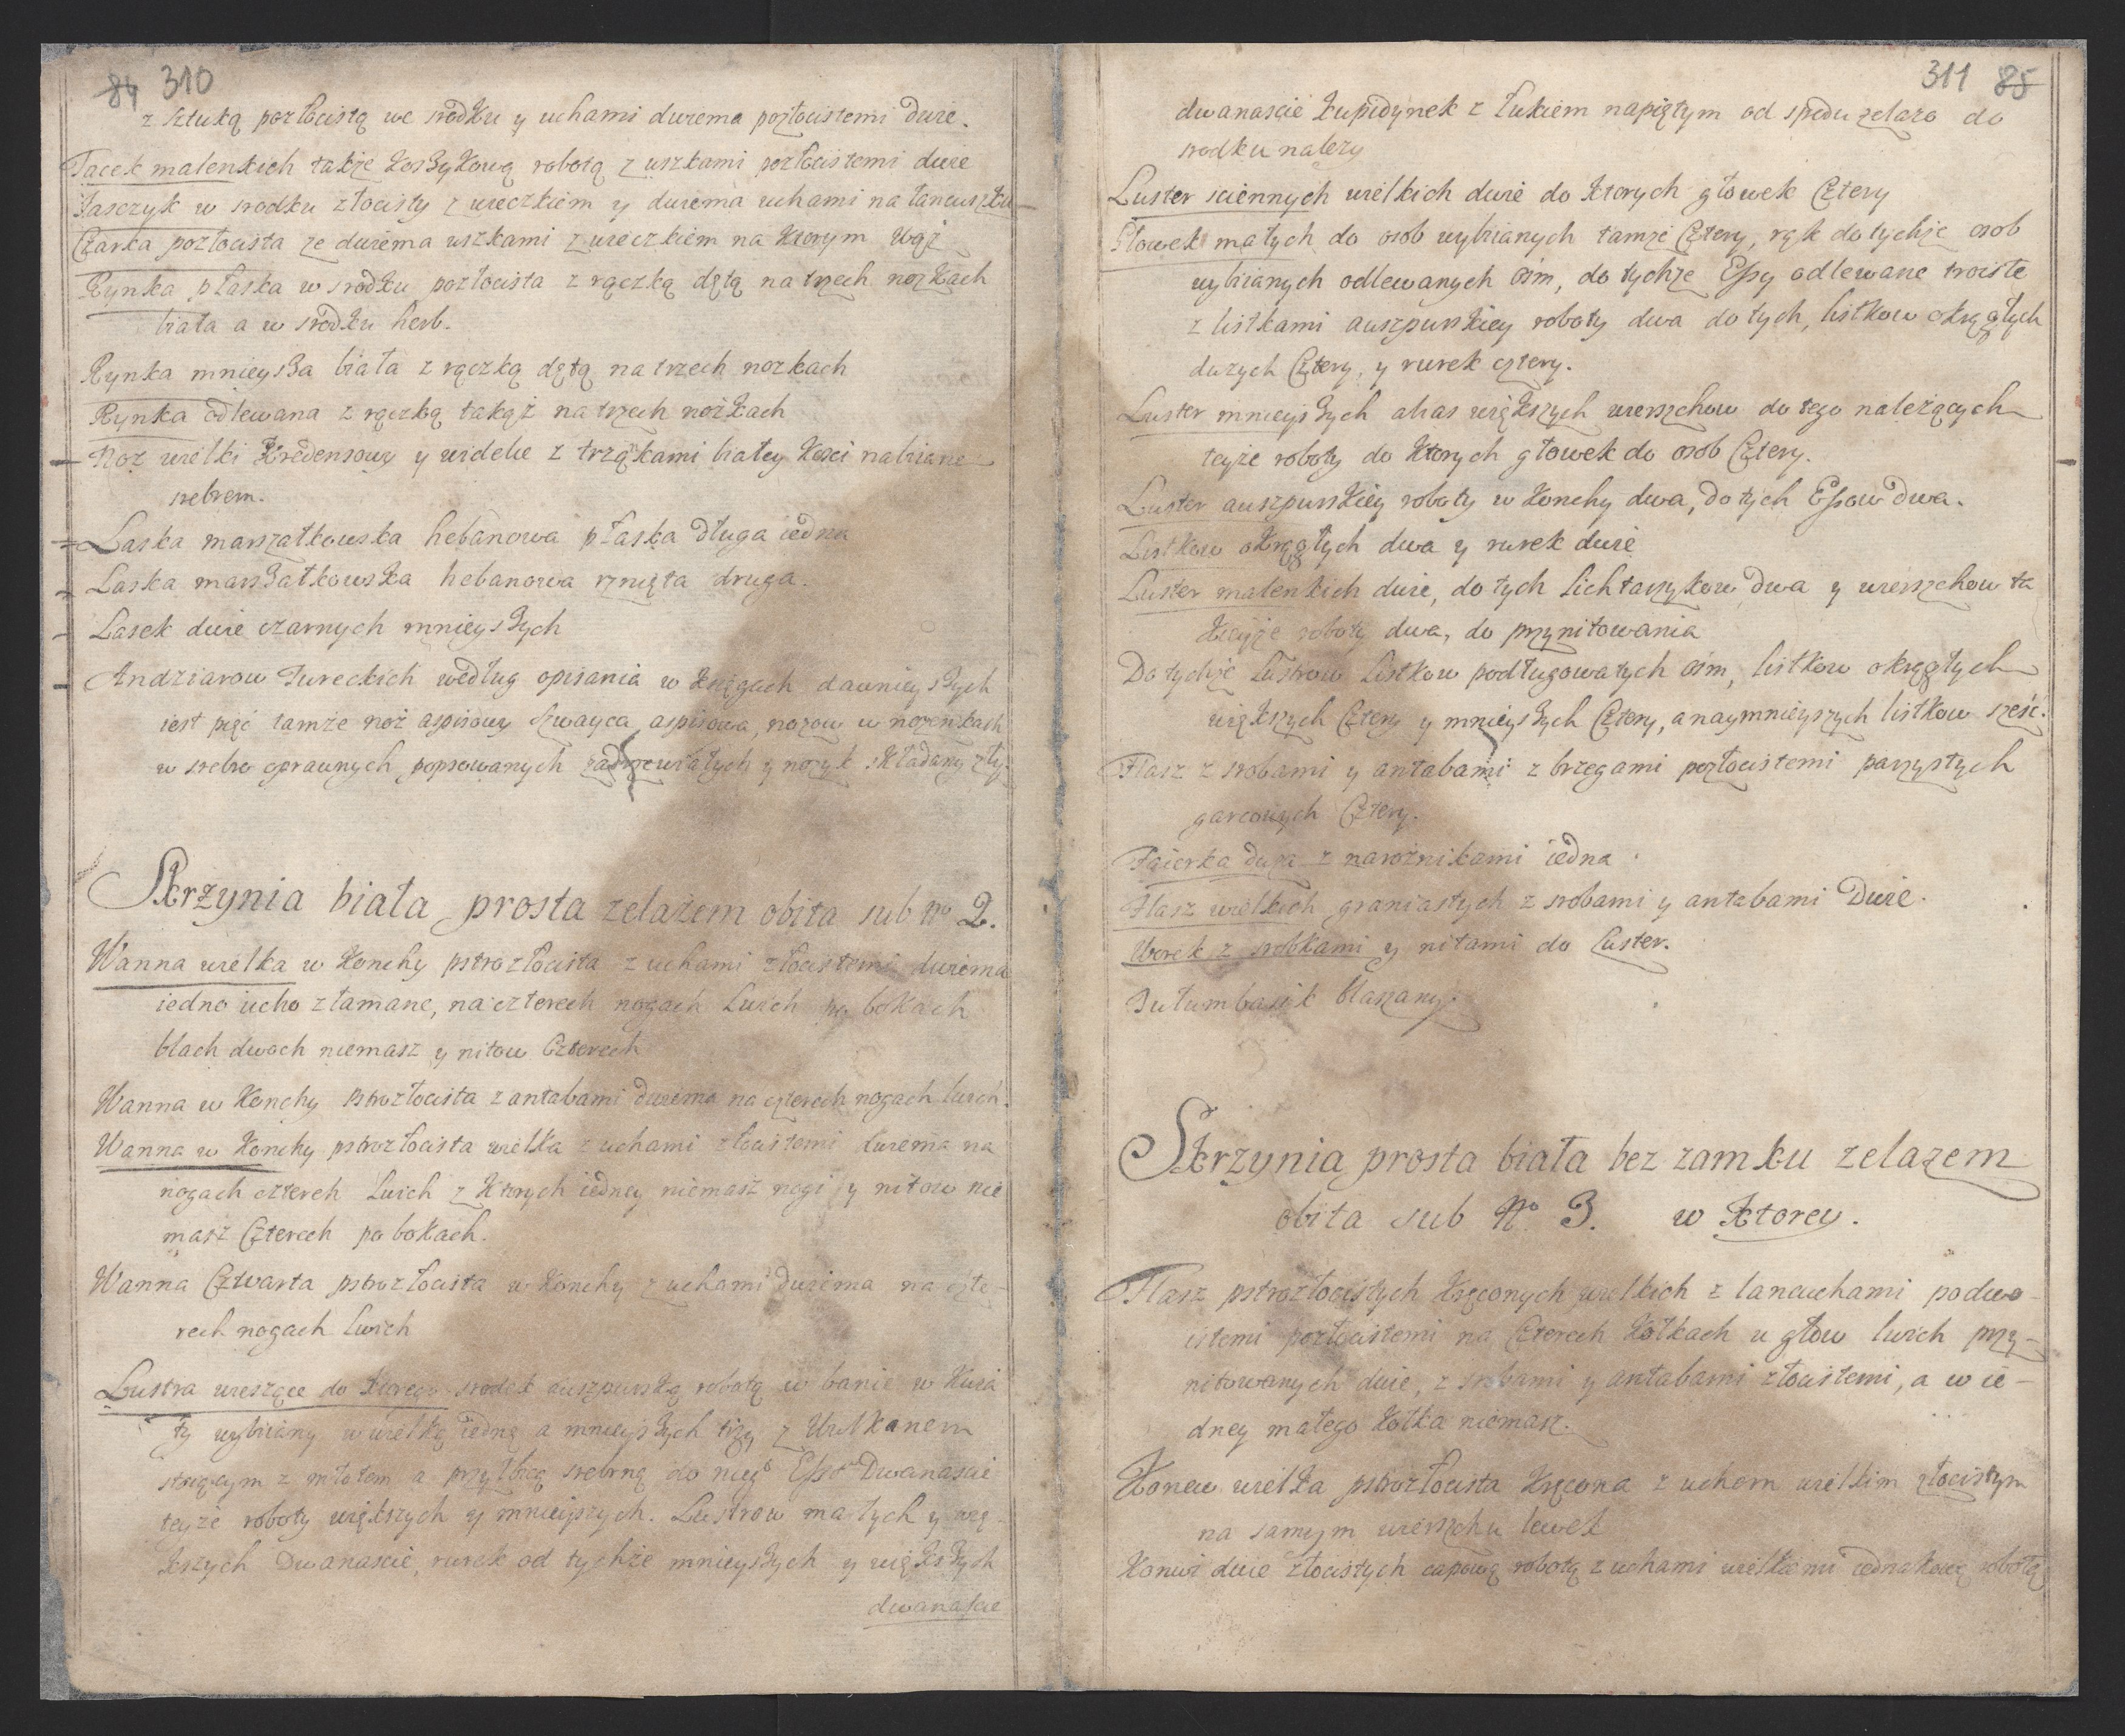 84 310
z sztuką pozłocistą we srodku y uchami dwiema pozłocistemi dwie.
Tacek malenkich także koszykową robotą z uszkami pozłocistemi dwie
Tasczyk w srodku złocisty z wieczkiem y dwiema uchami na łancuszku
Czarka pozłocista ze dwiema uszkami z wieczkiem na ktorym Wąż
Rynka płaska w srodku pozłocista z rączką dętą na trzech nozkach
biała a w srodku herb.
Rynka mnieysza biała z rączką dętą na trzech nozkach
Rynka odlewana z rączką takąż na trzech nożkach
Noz wielki Kredensowy y widelce z trząskami białey kosci nabiiane
srebrem.
Laska marszałkowska hebanowa płaska długa iedna
Laska marszałkowska hebanowa rznięta druga.
Lasek dwie czarnych mnieyszych
Andziarow Tureckich według opisania w xięgach dawnieyszych
iest pięć tamże noż aspisowy szwayca aspisowa, nozow w nozenkach
w srebro oprawnych popsowanych zadrzewiałych y nozyk składany zły.
Skrzynia biała prosta zelazem obita sub No 2.
Wanna wielka w konchy pstrozłocista z uchami złocistemi dwiema
iedno ucho złamane, na czterech nogach Lwich po bokach
blach dwoch niemasz y nitow Czterech
Wanna w Konchy pstrozłocista z antabami dwiema na czterech nogach lwich.
Wanna w Konchy pstrozłocista wielka z uchami złocistemi dwiema na
nogach czterech Lwich z ktorych iedney niemasz nogi y nitow nie
masz Czterech po bokach.
Wanna Czwarta pstrozłocista w Konchy z uchami dwiema na czte-
rech nogach lwich
Lustra wiszące do ktorego srodek auszpurską robotą w banie w kwia
ty wybiiany wielką iedną a mnieyszych trzy z Wulkanem
stoiącym z młotem a przyłbicą srebrną do niego Essow Dwanascie
teyże roboty większych y mnieyszych. Lustrow małych y wię-
kszych Dwanascie, rurek od tychże mnieyszych y większych
dwanascie
311 85
dwanascie kupidynek z Łukiem napiętym od spodu zelazo do
srodku nalezy
Luster sciennych wielkich dwie do ktorych głowek Cztery
Głowek małych do osob wybiianych tamże Cztery, rąk do tychże osob
wybiianych odlewanych ośm, do tychże Essy odlewane troiste
z listkami auszpurskiey roboty dwa do tych, listkow okrągłych
duzych Cztery, y rurek cztery.
Luster mnieyszych alias większych wierszchow do tego należących
teyże roboty do ktorych głowek do osob Cztery.
Luster auszpurskiey roboty w konchy dwa, do tych Essow dwa.
Listkow okrągłych dwa y rurek dwie
Luster malenkich dwie, do tych lichtarzykow dwa y wierszchow ta
kieyże roboty dwa, do przynitowania
Do tychże Lustrow Listkow podługowatych ośm, listkow okrągłych
większych Cztery y mnieyszych Cztery, a naymnieyszych listkow sześć.
Flasz z srobami y antabami z brzegami pozłocistemi parzystych
garcowych Cztery.
Faierka duza z narożnikami iedna.
Flasz wielkich graniastych z srobami y antabami Dwie.
Worek z srobkami y nitami do Luster.
Tułumbasik blaszany.
Skrzynia prosta biała bez zamku zelazem
obita sub No 3. w Ktorey.
Flasz pstrozłocistych kręconych wielkich z lancuchami podwo-
istemi pozłocistemi na Czterech kołkach u głow lwich przy-
nitowanych dwie, z srobami y antabami złocistemi, a w ie-
dney małego kołka niemasz.
Konew wielka pstrozłocista kręcona z uchem wielkim złocistym
na samym wierszchu lewek
Konwi dwie złocistych capową robotą z uchami wielkiemi iednakową robotą